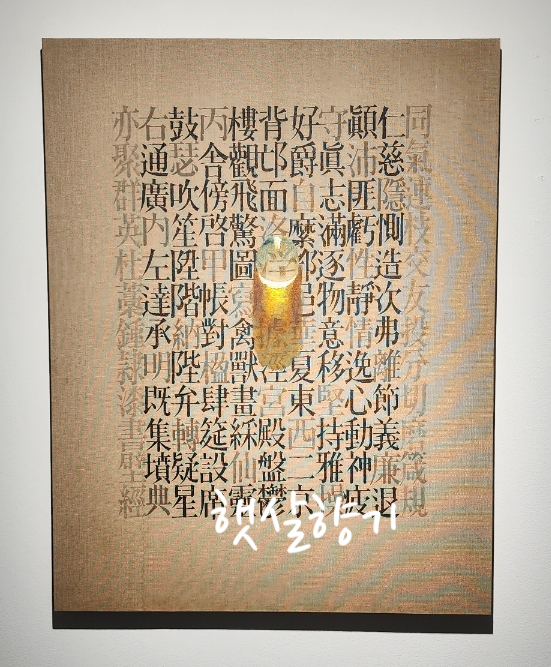 同氣連枝交友投分切磨箴規
仁慈隱惻造次弗離節義廉退
顚沛匪虧性靜情逸心動神疲
守眞志滿逐物意移堅持雅操
好爵自縻都邑華夏東西二京
背邙面洛浮據涇宮殿盤鬱
樓觀飛驚圖寫禽獸畫綵仙靈
丙舍傍啓甲帳對楹肆筵設席
鼓瑟吹笙陞階納陛弁轉疑星
右通廣内左達承明既集墳典
亦聚群英杜藁鍾隷漆書壁經
햇살향기